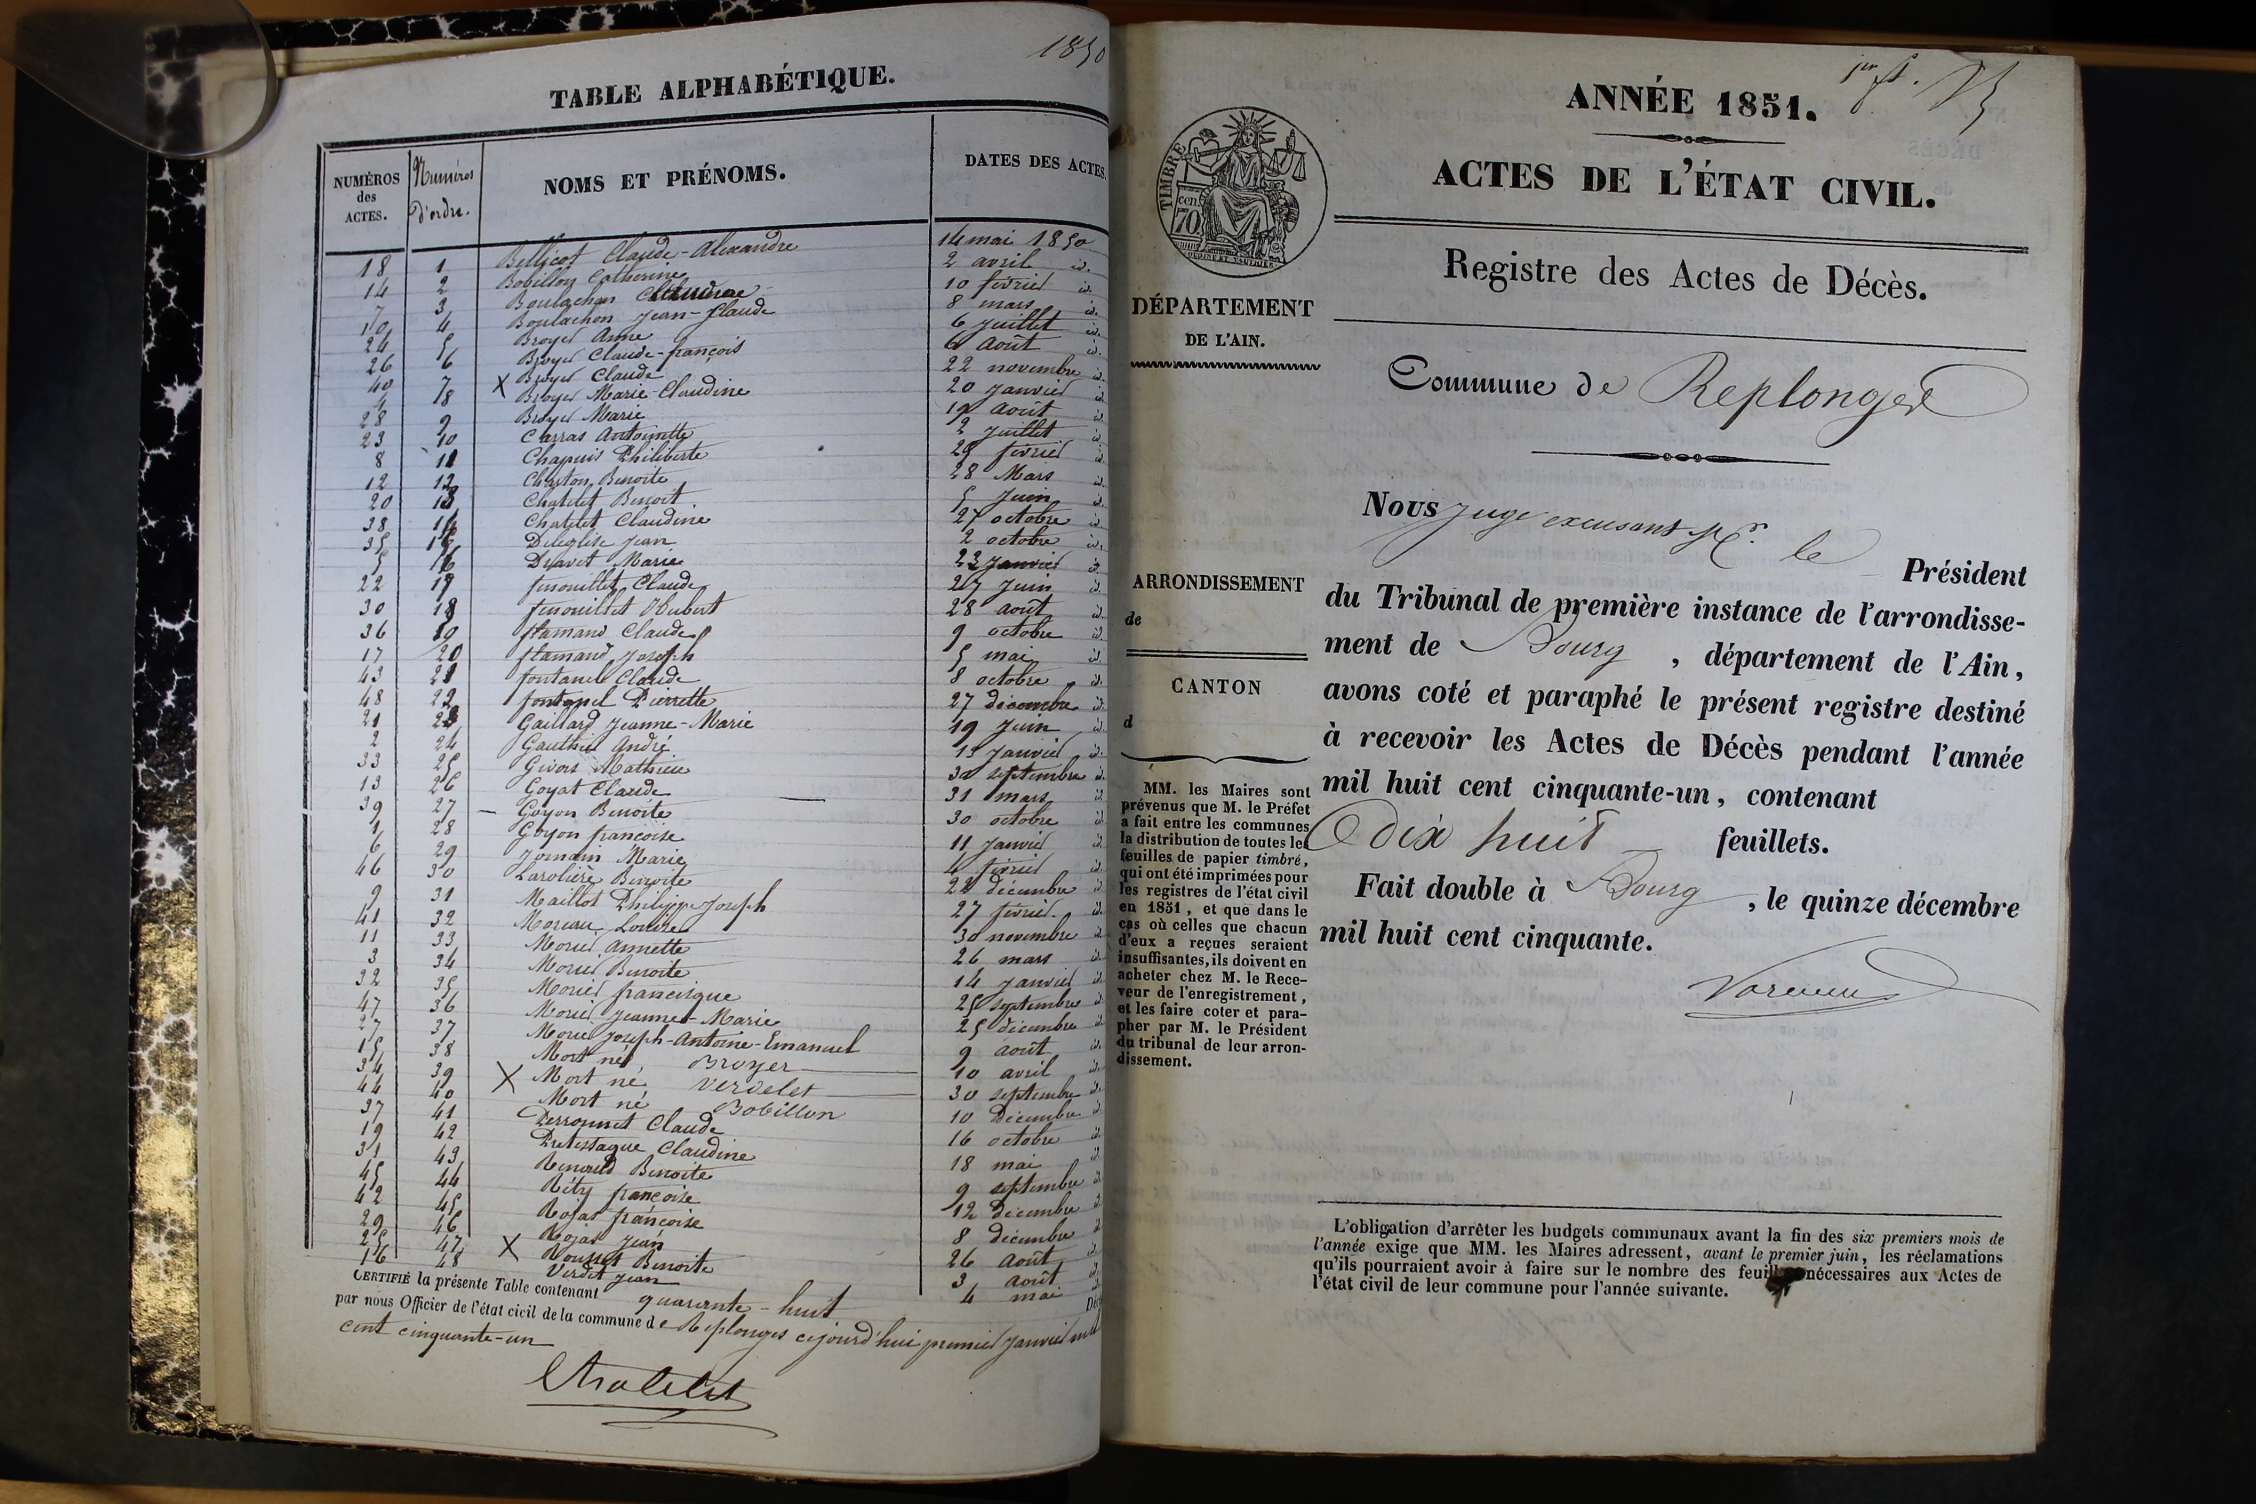 1850
TABLE ALPHABÉTIQUE.
NUMÉROS des ACTES. Numéros d'ordre. NOMS ET PRÉNOMS. DATES DES ACTES.
18 1 Bellicot Claude-Alexandre 14 mai 1850
14 2 Bobillon Catherine 2 avril id.
7 3 Boulachon Claudine 10 février id.
10 4 Boulachon Jean-Claude 8 mars id.
24 5 Broyer Anne 6 juillet id.
26 6 Broyer Claude-françois 6 Août id.
40 7 X Broyer Claude 22 novembre id.
4 8 Broyer Marie-Claudine 20 Janvier id.
28 9 Broyer Marie 19 août id.
23 10 Carras Antoinette 2 juillet id.
8 11 Chapuis Philiberte 29 février id.
12 12 Charton Benoite 28 Mars id.
20 13 Chatelet Benoit 5 Juin id.
38 14 Chatelet Claudine 27 octobre id.
35 15 Deléglise Jean 2 octobre id.
5 16 Dravet Marie 23 Janvier id.
22 17 fenouillet Claude 27 Juin id.
30 18 fenouillet Hubert 28 août id.
36 19 flamand Claude 9 octobre id.
17 20 flamand Joseph 5 mai id.
43 21 fontanel Claude 8 octobre id.
48 22 fontanel Pierrette 27 décembre id.
21 23 Gaillard Jeanne-Marie 19 Juin id.
2 24 Gauthier André 13 Janvier id.
33 25 Givors Mathieu 30 septembre id.
13 26 Goyat Claude 31 mars id.
39 27 Goyon Benoite 30 octobre id.
1 28 Goyon françoise 11 Janvier id.
6 29 Jomain Marie 4 février id.
46 30 Larolière Benoite 22 décembre id.
9 31 Maillot Philippe Joseph 27 février id.
41 32 Moreau Louise 30 novembre id.
11 33 Morel Annette 26 mars id.
3 34 Morel Benoite 14 Janvier id.
32 35 Morel francisque 25 septembre id.
47 36 Morel Jeanne-Marie 25 décembre id.
27 37 Morel Joseph-Antoine-Emanuel 9 août id.
15 38 Mort né Broyer 10 avril id.
34 39 X Mort né Verdelet 30 septembre id.
44 40 Mort né Bobillon 10 Décembre id.
37 41 Perronnet Claude 16 octobre id.
19 42 Pretessague Claudine 18 mai id.
31 43 Renould Benoite 9 septembre id.
45 44 Réty françoise 12 décembre id.
42 45 Rojat françoise 8 décembre id.
29 46 Rojat Jean 26 Août id.
25 47 X Rousset Benoite 3 août id.
16 48 Verdet Jean 4 mai id.
CERTIFIÉ la présente Table contenant quarante-huit Déc
par nous Officier de l'état civil de la commune de Replonges cejourd'hui premier Janvier mil
cent cinquante-un
Chatelet
ANNÉE 1851.
ACTES DE L'ÉTAT CIVIL.
Registre des Actes de Décès.
TIMBRE
70 cen.
DÉPARTEMENT
DE L'AIN.
Commune de Replonges
Nous Juge excusant Mr. le Président
du Tribunal de première instance de l'arrondisse-
ment de Bourg, département de l'Ain,
avons coté et paraphé le présent registre destiné
à recevoir les Actes de Décès pendant l'année
mil huit cent cinquante-un, contenant
dix huit feuillets.
Fait double à Bourg, le quinze décembre
mil huit cent cinquante.
ARRONDISSEMENT
de
CANTON
d
MM. les Maires sont
prévenus que M. le Préfet
a fait entre les communes
la distribution de toutes les
feuilles de papier timbré,
qui ont été imprimées pour
les registres de l'état civil
en 1851, et que dans le
cas où celles que chacun
d'eux a reçues seraient
insuffisantes, ils doivent en
acheter chez M. le Rece-
veur de l'enregistrement,
et les faire coter et para-
pher par M. le Président
du tribunal de leur arron-
dissement.
L'obligation d'arrêter les budgets communaux avant la fin des six premiers mois de
l'année exige que MM. les Maires adressent, avant le premier juin, les réclamations
qu'ils pourraient avoir à faire sur le nombre des feuilles nécessaires aux Actes de
l'état civil de leur commune pour l'année suivante.